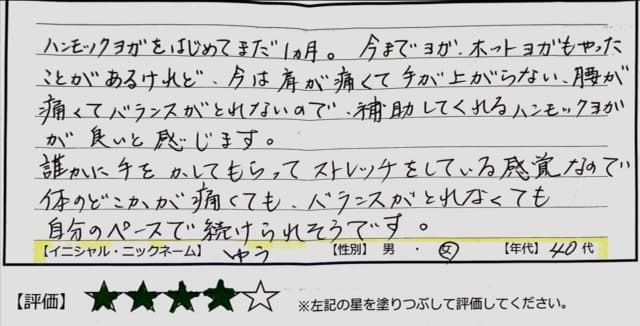 ハンモックヨガをはじめてまだ1ヵ月。今までヨガ、ホットヨガもやった
ことがあるけれど、今は肩が痛くて手が上がらない、腰が
痛くてバランスがとれないので、補助してくれるハンモックヨガ
が良いと感じます。
誰かに手をかしてもらってストレッチをしている感覚なので
体のどこかが痛くても、バランスがとれなくても
自分のペースで続けられそうです。
【イニシャル・ニックネーム】 ゆう 【性別】 男 ・ 女 【年代】 40代
【評価】 ★★★★☆ ※左記の星を塗りつぶして評価してください。